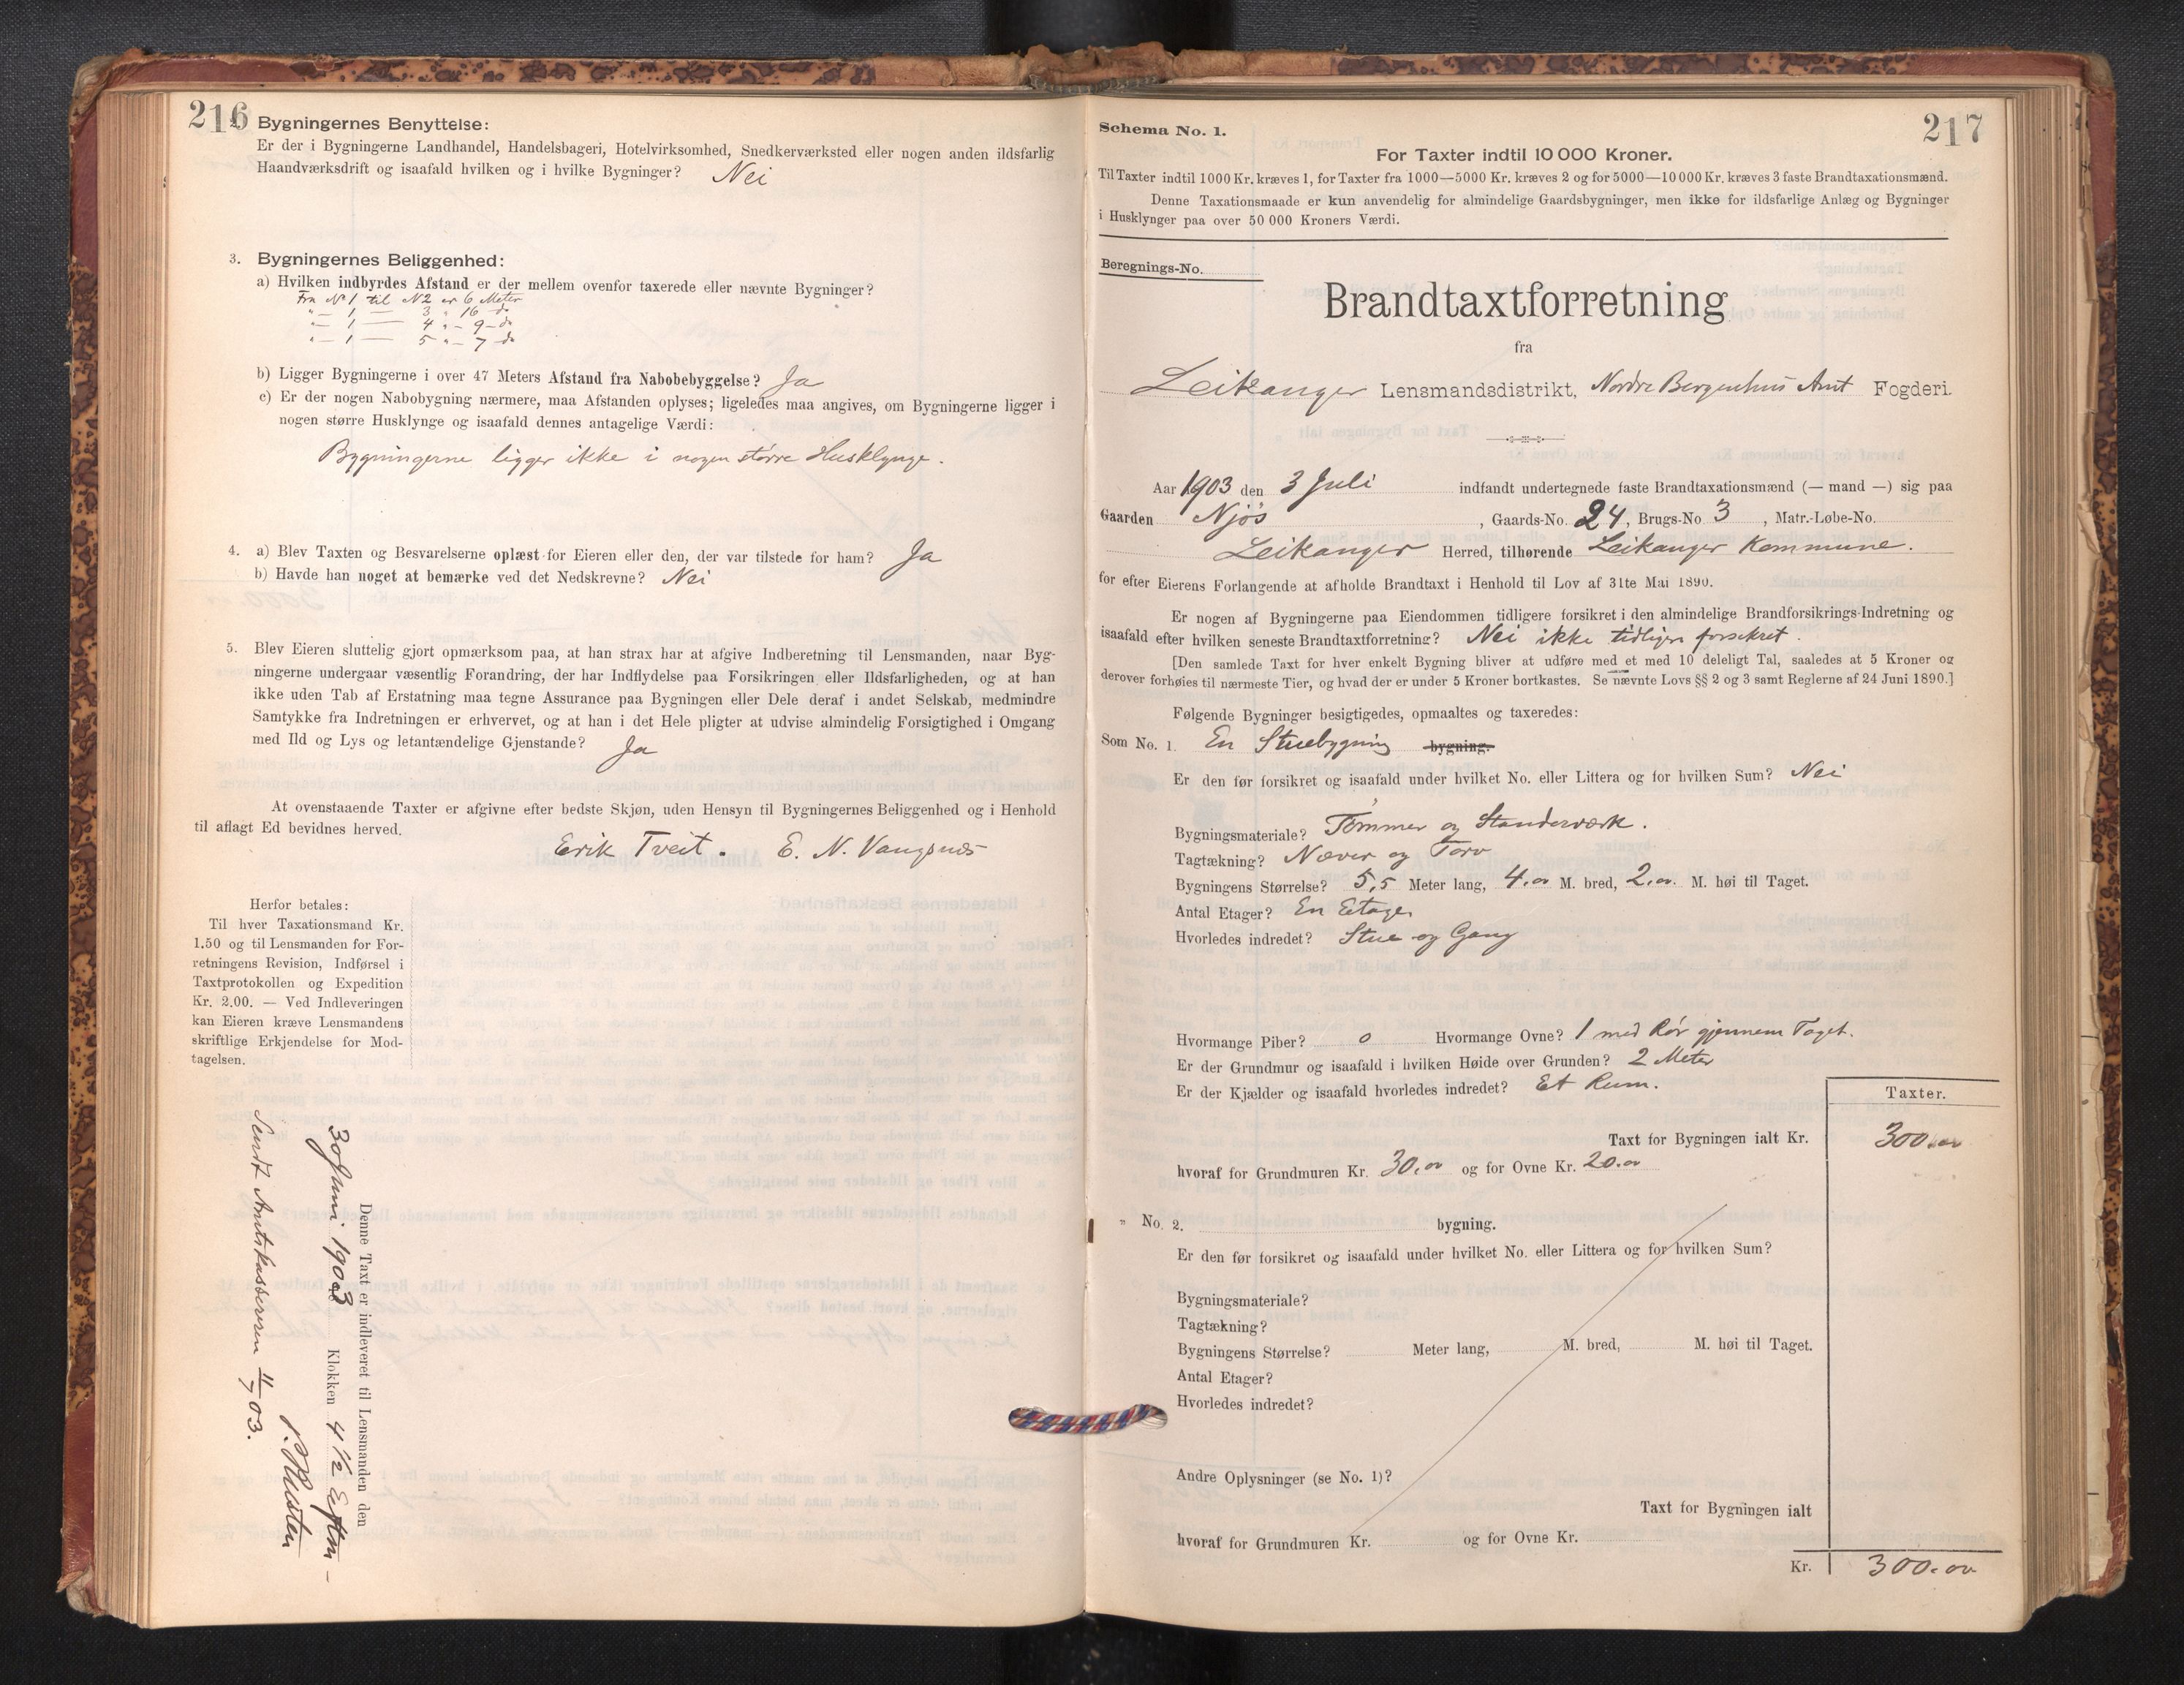 216
2. Bygningernes Benyttelse:
Er der i Bygningerne Landhandel, Handelsbageri, Hotelvirksomhed, Snedkerværksted eller nogen anden ildsfarlig
Haandværksdrift og isaafald hvilken og i hvilke Bygninger? Nei
3. Bygningernes Beliggenhed:
a) Hvilken indbyrdes Afstand er der mellem ovenfor taxerede eller nævnte Bygninger?
Fra No 1 til No 2 er 6 Meter
"— 1 — 3 "— 16 — do
"— 1 — 4 "— 9 — do
"— 1 — 5 "— 7 — do
b) Ligger Bygningerne i over 47 Meters Afstand fra Nabobebyggelse? Ja
c) Er der nogen Nabobygning nærmere, maa Afstanden oplyses; ligeledes maa angives, om Bygningerne ligger i
nogen større Husklynge og isaafald dennes antagelige Værdi:
Bygningerne ligger ikke i nogen større Husklynge.
4. a) Blev Taxten og Besvarelserne oplæst for Eieren eller den, der var tilstede for ham? Ja
b) Havde han noget at bemærke ved det Nedskrevne? Nei
5. Blev Eieren sluttelig gjort opmærksom paa, at han strax har at afgive Indberetning til Lensmanden, naar Byg-
ningerne undergaar væsentlig Forandring, der har Indflydelse paa Forsikringen eller Ildsfarligheden, og at han
ikke uden Tab af Erstatning maa tegne Assurance paa Bygningen eller Dele deraf i andet Selskab, medmindre
Samtykke fra Indretningen er erhvervet, og at han i det Hele pligter at udvise almindelig Forsigtighed i Omgang
med Ild og Lys og letantændelige Gjenstande? Ja
At ovenstaaende Taxter er afgivne efter bedste Skjøn, uden Hensyn til Bygningernes Beliggenhed og i Henhold
til aflagt Ed bevidnes herved.
Erik Tveit. E. N. Vangsnæs
Herfor betales:
Til hver Taxationsmand Kr.
1.50 og til Lensmanden for For-
retningens Revision, Indførsel i
Taxtprotokollen og Expedition
Kr. 2.00. — Ved Indleveringen
kan Eieren kræve Lensmandens
skriftlige Erkjendelse for Mod-
tagelsen.
Denne Taxt er indleveret til Lensmanden den
30 Juni 1903 Klokken 4 1/2 Eftm –
Sendt Amtskassereren 11/7 03.
217
Schema No. 1.
For Taxter indtil 10 000 Kroner.
Til Taxter indtil 1000 Kr. kræves 1, for Taxter fra 1000—5000 Kr. kræves 2 og for 5000—10 000 Kr. kræves 3 faste Brandtaxationsmænd.
Denne Taxationsmaade er kun anvendelig for almindelige Gaardsbygninger, men ikke for ildsfarlige Anlæg og Bygninger
i Husklynger paa over 50 000 Kroners Værdi.
Beregnings-No.
Brandtaxtforretning
fra
Leikanger Lensmandsdistrikt, Nordre Bergenhus Amt Fogderi.
Aar 1903 den 3 Juli indfandt undertegnede faste Brandtaxationsmænd (— mand —) sig paa
Gaarden Njøs, Gaards-No. 24, Brugs-No 3, Matr.-Løbe-No.
Leikanger Herred, tilhørende Leikanger Kommune.
for efter Eierens Forlangende at afholde Brandtaxt i Henhold til Lov af 31te Mai 1890.
Er nogen af Bygningerne paa Eiendommen tidligere forsikret i den almindelige Brandforsikrings-Indretning og
isaafald efter hvilken seneste Brandtaxtforretning? Nei ikke tidligere forsekret.
[Den samlede Taxt for hver enkelt Bygning bliver at udføre med et med 10 deleligt Tal, saaledes at 5 Kroner og
derover forhøies til nærmeste Tier, og hvad der er under 5 Kroner bortkastes. Se nævnte Lovs §§ 2 og 3 samt Reglerne af 24 Juni 1890.]
Følgende Bygninger besigtigedes, opmaaltes og taxeredes:
Som No. 1. En Stuebygning bygning.
Er den før forsikret og isaafald under hvilket No. eller Littera og for hvilken Sum? Nei
Bygningsmateriale? Tømmer og Standerværk.
Tagtækning? Næver og Torv
Bygningens Størrelse? 5,5 Meter lang, 4.00 M. bred, 2.00. M. høi til Taget.
Antal Etager? En Etage
Hvorledes indredet? Stue og Gang
Hvormange Piber? 0 Hvormange Ovne? 1 med Rør gjennem Taget.
Er der Grundmur og isaafald i hvilken Høide over Grunden? 2 Meter
Er der Kjælder og isaafald hvorledes indredet? Et Rum.
Taxter.
Taxt for Bygningen ialt Kr. 300.00
hvoraf for Grundmuren Kr. 30.00 og for Ovne Kr. 20.00
" No. 2. bygning.
Er den før forsikret og isaafald under hvilket No. eller Littera og for hvilken Sum?
Bygningsmateriale?
Tagtækning?
Bygningens Størrelse? Meter lang, M. bred, M. høi til Taget.
Antal Etager?
Hvorledes indredet?
Andre Oplysninger (se No. 1)?
Taxt for Bygningen ialt
hvoraf for Grundmuren Kr. og for Ovne Kr.
Kr. 300.00